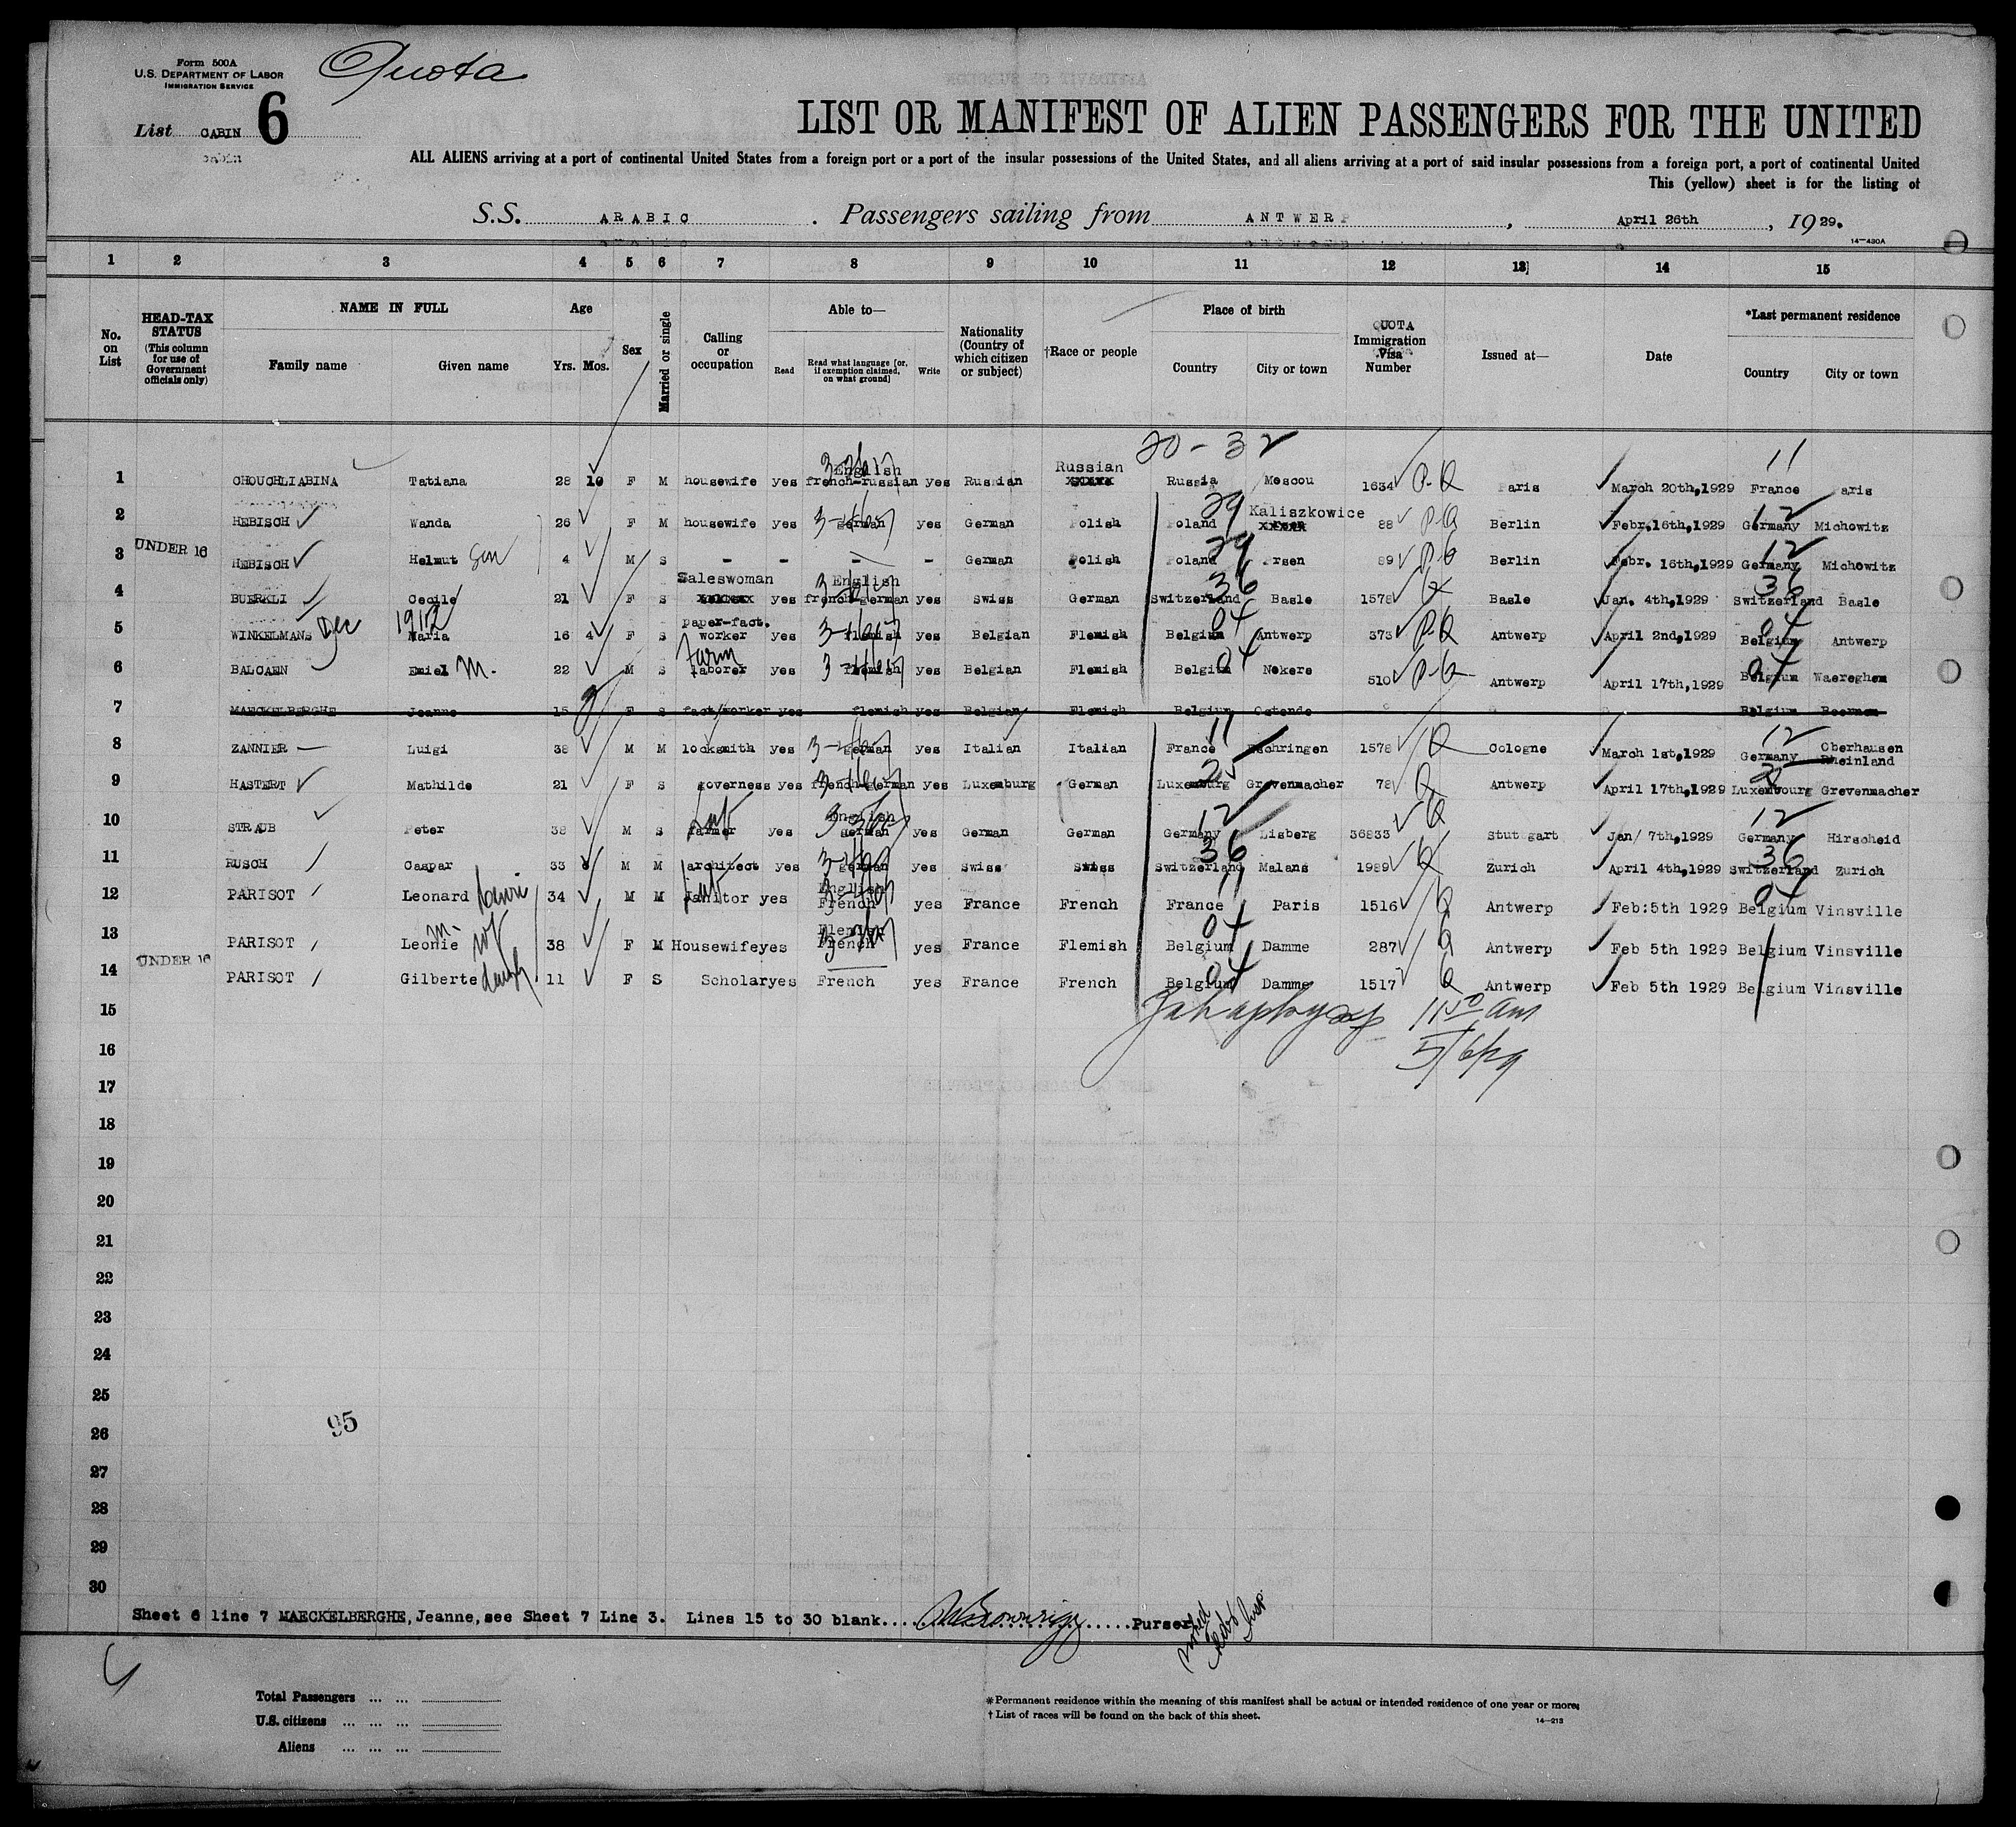 Form 500A
U.S. DEPARTMENT OF LABOR
IMMIGRATION SERVICE
Quota
List CABIN 6
LIST OR MANIFEST OF ALIEN PASSENGERS FOR THE UNITED
ALL ALIENS arriving at a port of continental United States from a foreign port or a port of the insular possessions of the United States, and all aliens arriving at a port of said insular possessions from a foreign port, a port of continental United
This (yellow) sheet is for the listing of
S.S. ARABIC . Passengers sailing from ANTWERP , April 26th , 1929.
14—430A
1 2 3 4 5 6 7 8 9 10 11 12 13 14 15
No. on List
HEAD-TAX STATUS (This column for use of Government officials only)
NAME IN FULL
Family name Given name
Age
Yrs. Mos.
Sex
Married or single
Calling or occupation
Able to—
Read Read what language [or, if exemption claimed, on what ground] Write
Nationality (Country of which citizen or subject)
†Race or people
Place of birth
Country City or town
QUOTA Immigration Visa Number
Issued at—
Date
*Last permanent residence
Country City or town
20-32 11
English Russian
1 CHOUCHLIABINA Tatiana 28 10 F M housewife yes french-russian yes Russian xxxxx Russia Moscou 1634 P.Q Paris March 20th,1929 France aris
29 Kaliszkowice 12
2 HEBISCH Wanda 26 F M housewife yes german yes German Polish Poland 88 P.Q Berlin Febr.16th,1929 Germany Michowitz
UNDER 16
29 12
3 HEBISCH Helmut Son 4 M S - - - - German Polish Poland rsen 89 Berlin Febr. 16th,1929 Germany Michowitz
Saleswoman English 36 36
4 BUERKLI Cecile 21 F S yes french-german yes Swiss German Switzerland Basle 1578 Q Basle Jan. 4th,1929 Switzerland Basle
Dec 1912 paper-fact. 04 04
5 WINKELMANS Maria 16 4 F S worker yes flemish yes Belgian Flemish Belgium Antwerp 373 P.Q Antwerp April 2nd,1929 Belgium Antwerp
farm 04 04
6 BALCAEN Emiel M. 22 M S laborer yes flemish yes Belgian Flemish Belgium Nokere 510 Antwerp April 17th,1929 Belgium Waereghem
7 MAECKELBERGHE Jeanne 15 F S fact/worker yes flemish yes Belgian Flemish Belgium Ostende Belgium Beernem
11 12
8 ZANNIER Luigi 38 M M locksmith yes german yes Italian Italian France chringen 1578 Q Cologne March 1st,1929 Germany Oberhausen Rheinland
9 HASTERT Mathilde 21 F S governess yes french-german yes Luxemburg German Luxemburg Grevenmacher 78 Q Antwerp April 17th,1929 Luxembourg Grevenmacher
English 12 12
10 STRAUB Peter 38 M S farmer yes german yes German German Germany Lisberg 36833 Q Stuttgart Jan/ 7th,1929 Germany Hirscheid
36 36
11 RUSCH Caspar 33 M M architect yes german yes Swiss Swiss Switzerland Malans 1989 Q Zurich April 4th,1929 Switzerland Zurich
English 11 04
12 PARISOT Leonard 34 M M Janitor yes French yes France French France Paris 1516 Q Antwerp Feb:5th 1929 Belgium Vinsville
m. Flemish 04
13 PARISOT Leonie 38 F M Housewife yes French yes France Flemish Belgium Damme 287 Q Antwerp Feb 5th 1929 Belgium Vinsville
UNDER 16
04
14 PARISOT Gilberte daugh 11 F S Scholar yes French yes France French Belgium Damme 1517 Q Antwerp Feb 5th 1929 Belgium Vinsville
15
5/6/29
16
17
18
19
20
21
22
23
24
25
95
26
27
28
29
30
Sheet 6 line 7 MAECKELBERGHE, Jeanne, see Sheet 7 Line 3. Lines 15 to 30 blank.... Purser
Total Passengers ... ...
U.S. citizens ... ... ...
Aliens ... ... ...
*Permanent residence within the meaning of this manifest shall be actual or intended residence of one year or more.
†List of races will be found on the back of this sheet.
14—213